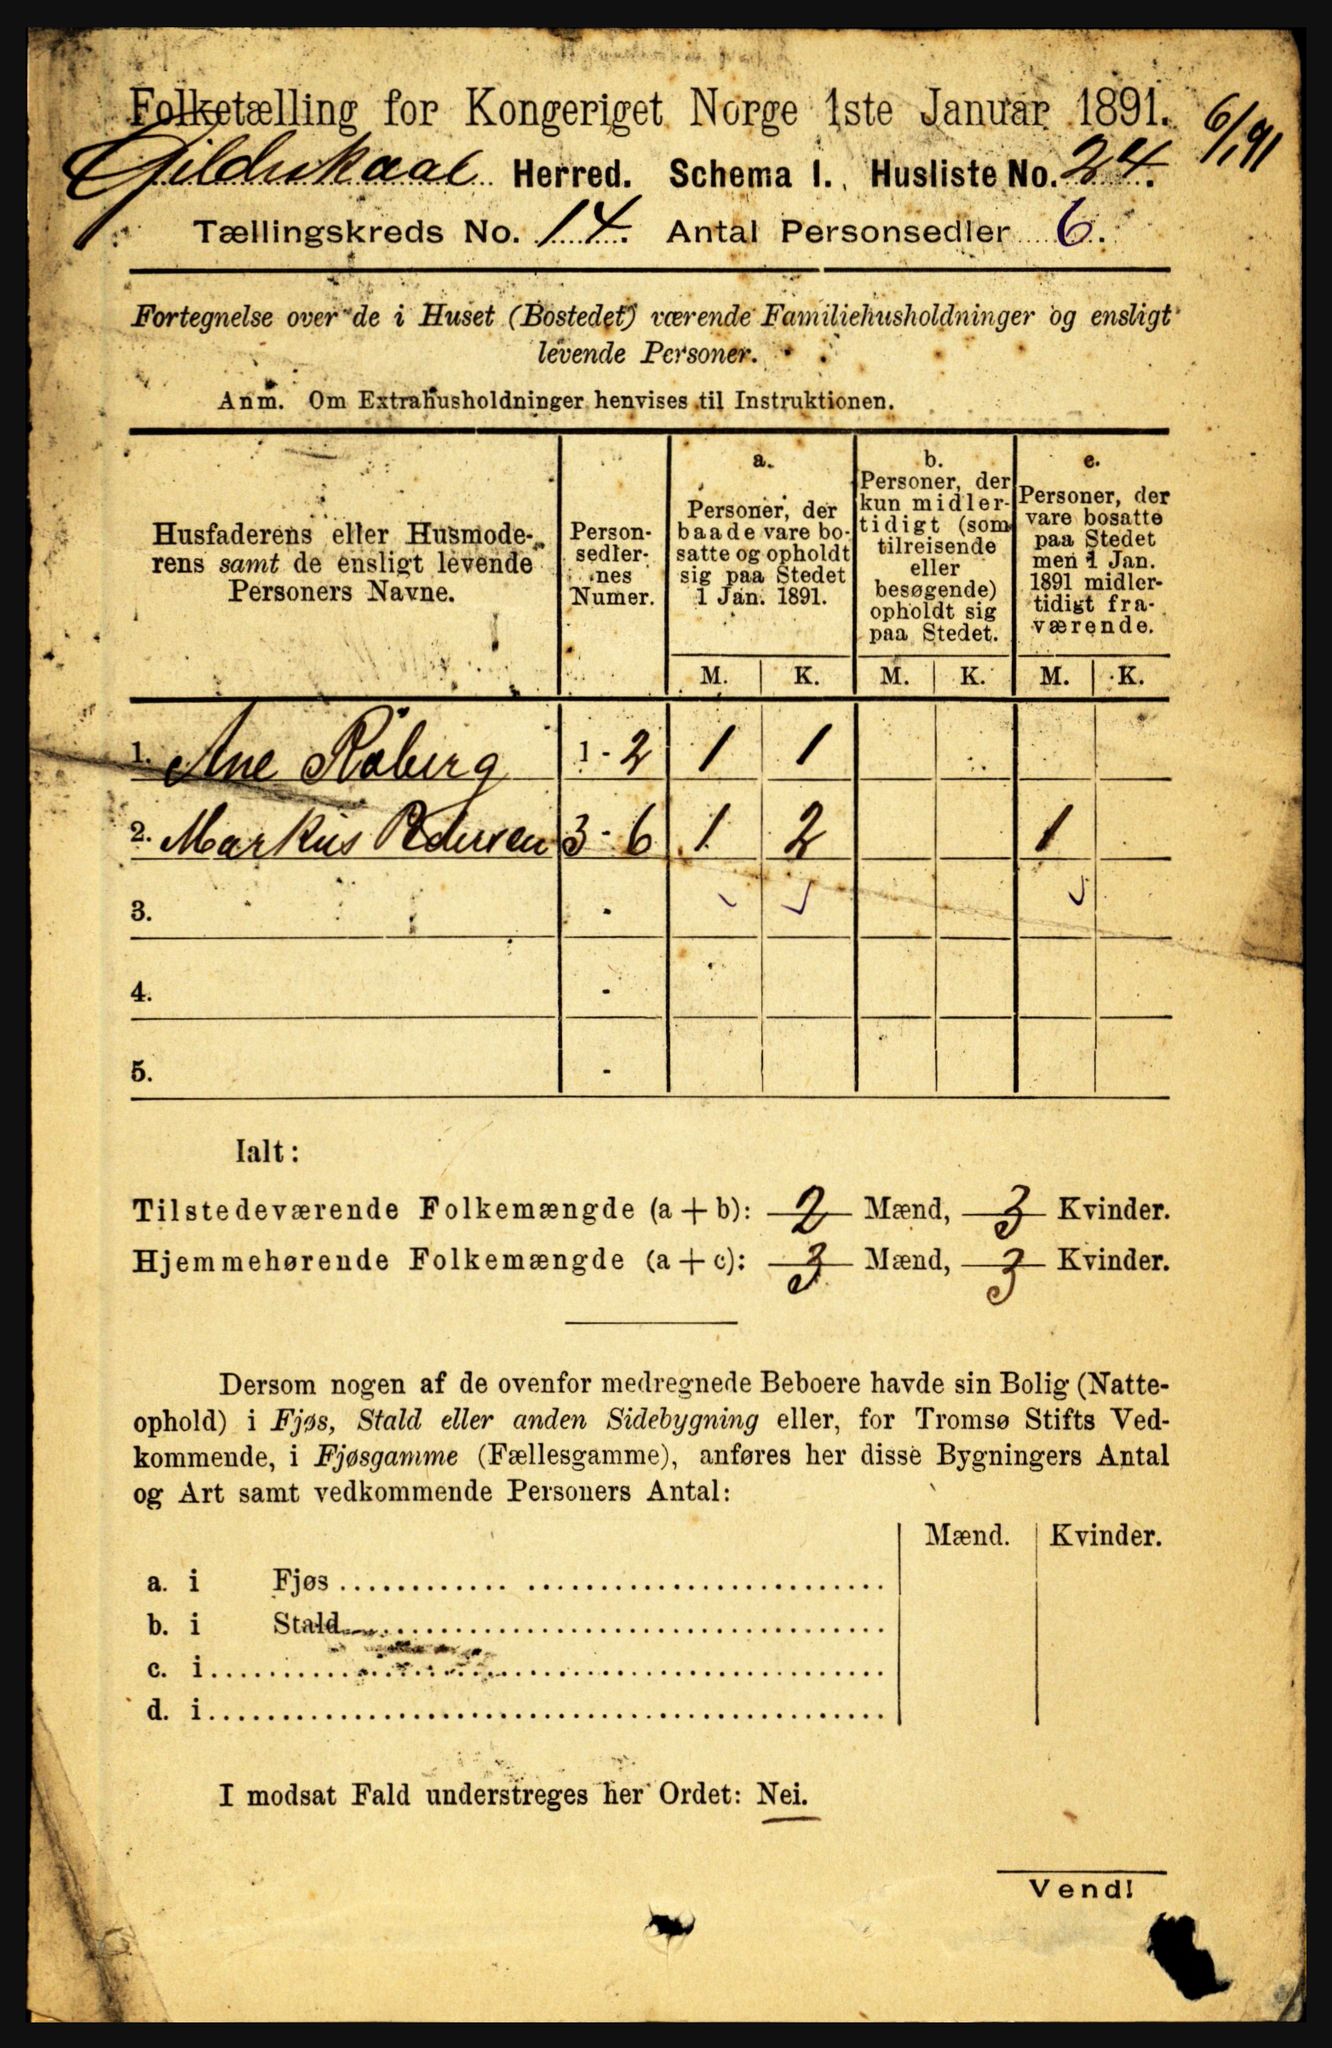 Folketælling for Kongeriget Norge 1ste Januar 1891.
6/1 91
Gildeskaal Herred. Schema I. Husliste No. 24.
Tællingskreds No. 14. Antal Personsedler 6.
Fortegnelse over de i Huset (Bostedet) værende Familiehusholdninger og ensligt
levende Personer.
Anm. Om Extrahusholdninger henvises til Instruktionen.
Husfaderens eller Husmode-
rens samt de ensligt levende
Personers Navne.
Person-
sedler-
nes
Numer.
a.
Personer, der
baade vare bo-
satte og opholdt
sig paa Stedet
1 Jan. 1891.
b.
Personer, der
kun midler-
tidigt (som
tilreisende
eller
besøgende)
opholdt sig
paa Stedet.
c.
Personer, der
vare bosatte
paa Stedet
men 1 Jan.
1891 midler-
tidigt fra-
værende.
M. K. M. K. M. K.
1. Ane Råberg 1 - 2 1 1
2. Markus Pedersen 3 - 6 1 2 1
3. -
4. -
5. -
Ialt:
Tilstedeværende Folkemængde (a + b): 2 Mænd, 3 Kvinder.
Hjemmehørende Folkemængde (a + c): 3 Mænd, 3 Kvinder.
Dersom nogen af de ovenfor medregnede Beboere havde sin Bolig (Natte-
ophold) i Fjøs, Stald eller anden Sidebygning eller, for Tromsø Stifts Ved-
kommende, i Fjøsgamme (Fællesgamme), anføres her disse Bygningers Antal
og Art samt vedkommende Personers Antal:
Mænd. Kvinder.
a. i Fjøs
b. i Stald
c. i
d. i
I modsat Fald understreges her Ordet: Nei.
Vend!